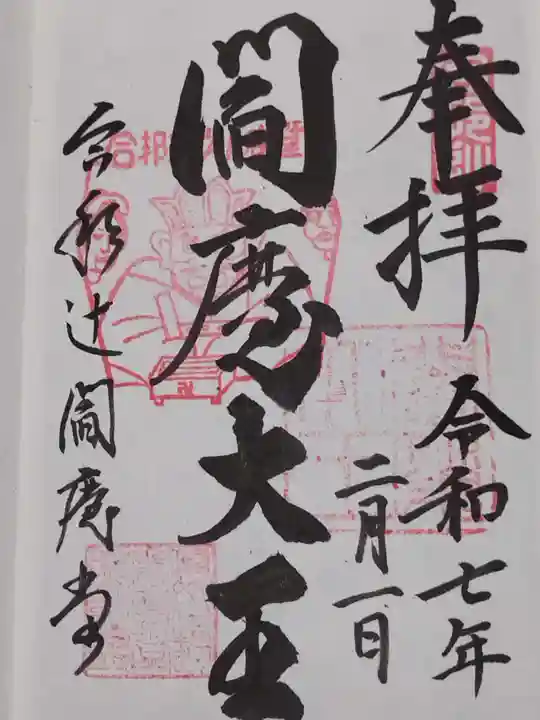 奉拝
令和七年
二月一日
閻魔大王
合邦辻閻魔堂